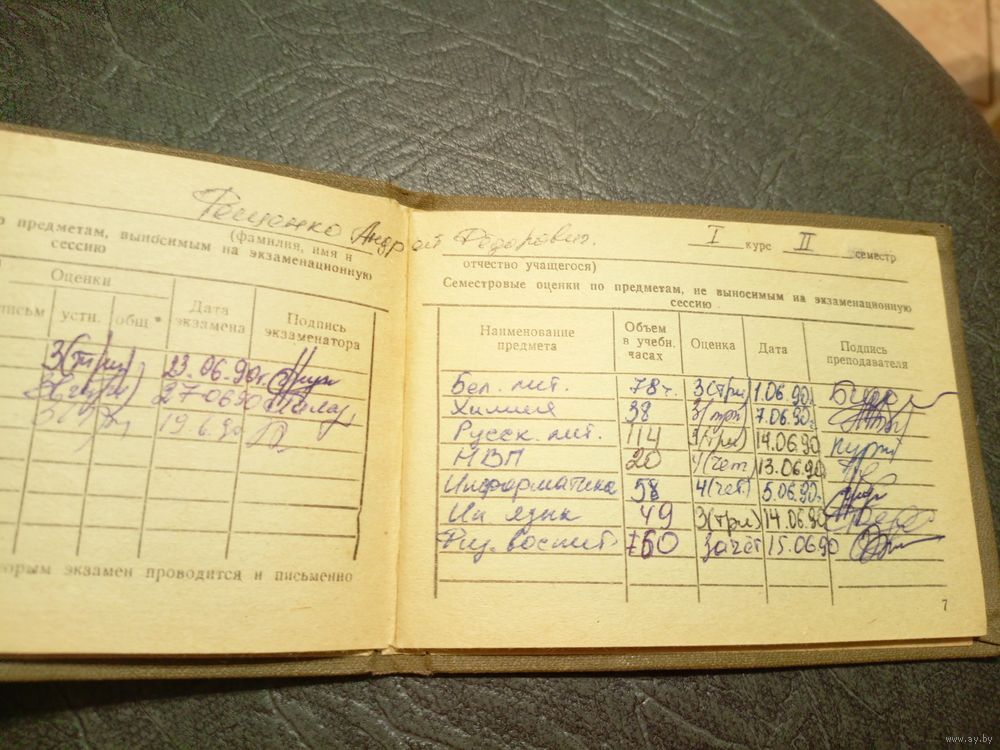 Фещенко Андрей Федорович. I курс II семестр
предметам, выносимым на экзаменационную
(фамилия, имя и
сессию
отчество учащегося)
Оценки
устн.
общ.*
Дата экзамена
Подпись экзаменатора
3(три) 23.06.90г.
27.06.90
19.6.90
орым экзамен проводится и письменно
Семестровые оценки по предметам, не выносимым на экзаменационную
сессию
Наименование предмета
Объем в учебн. часах
Оценка
Дата
Подпись преподавателя
Бел. лит. 78г. 3(три) 1.06.90г.
Химия 38 3(три) 7.06.90г.
Русск. лит. 114 3(три) 14.06.90
НВП 20 4(чет) 13.06.90
Информатика 58 4(чет.) 5.06.90г.
Ин язык 49 3(три) 14.06.90
Физ. воспит. 160 зачёт 15.06.90
7
www.ay.by